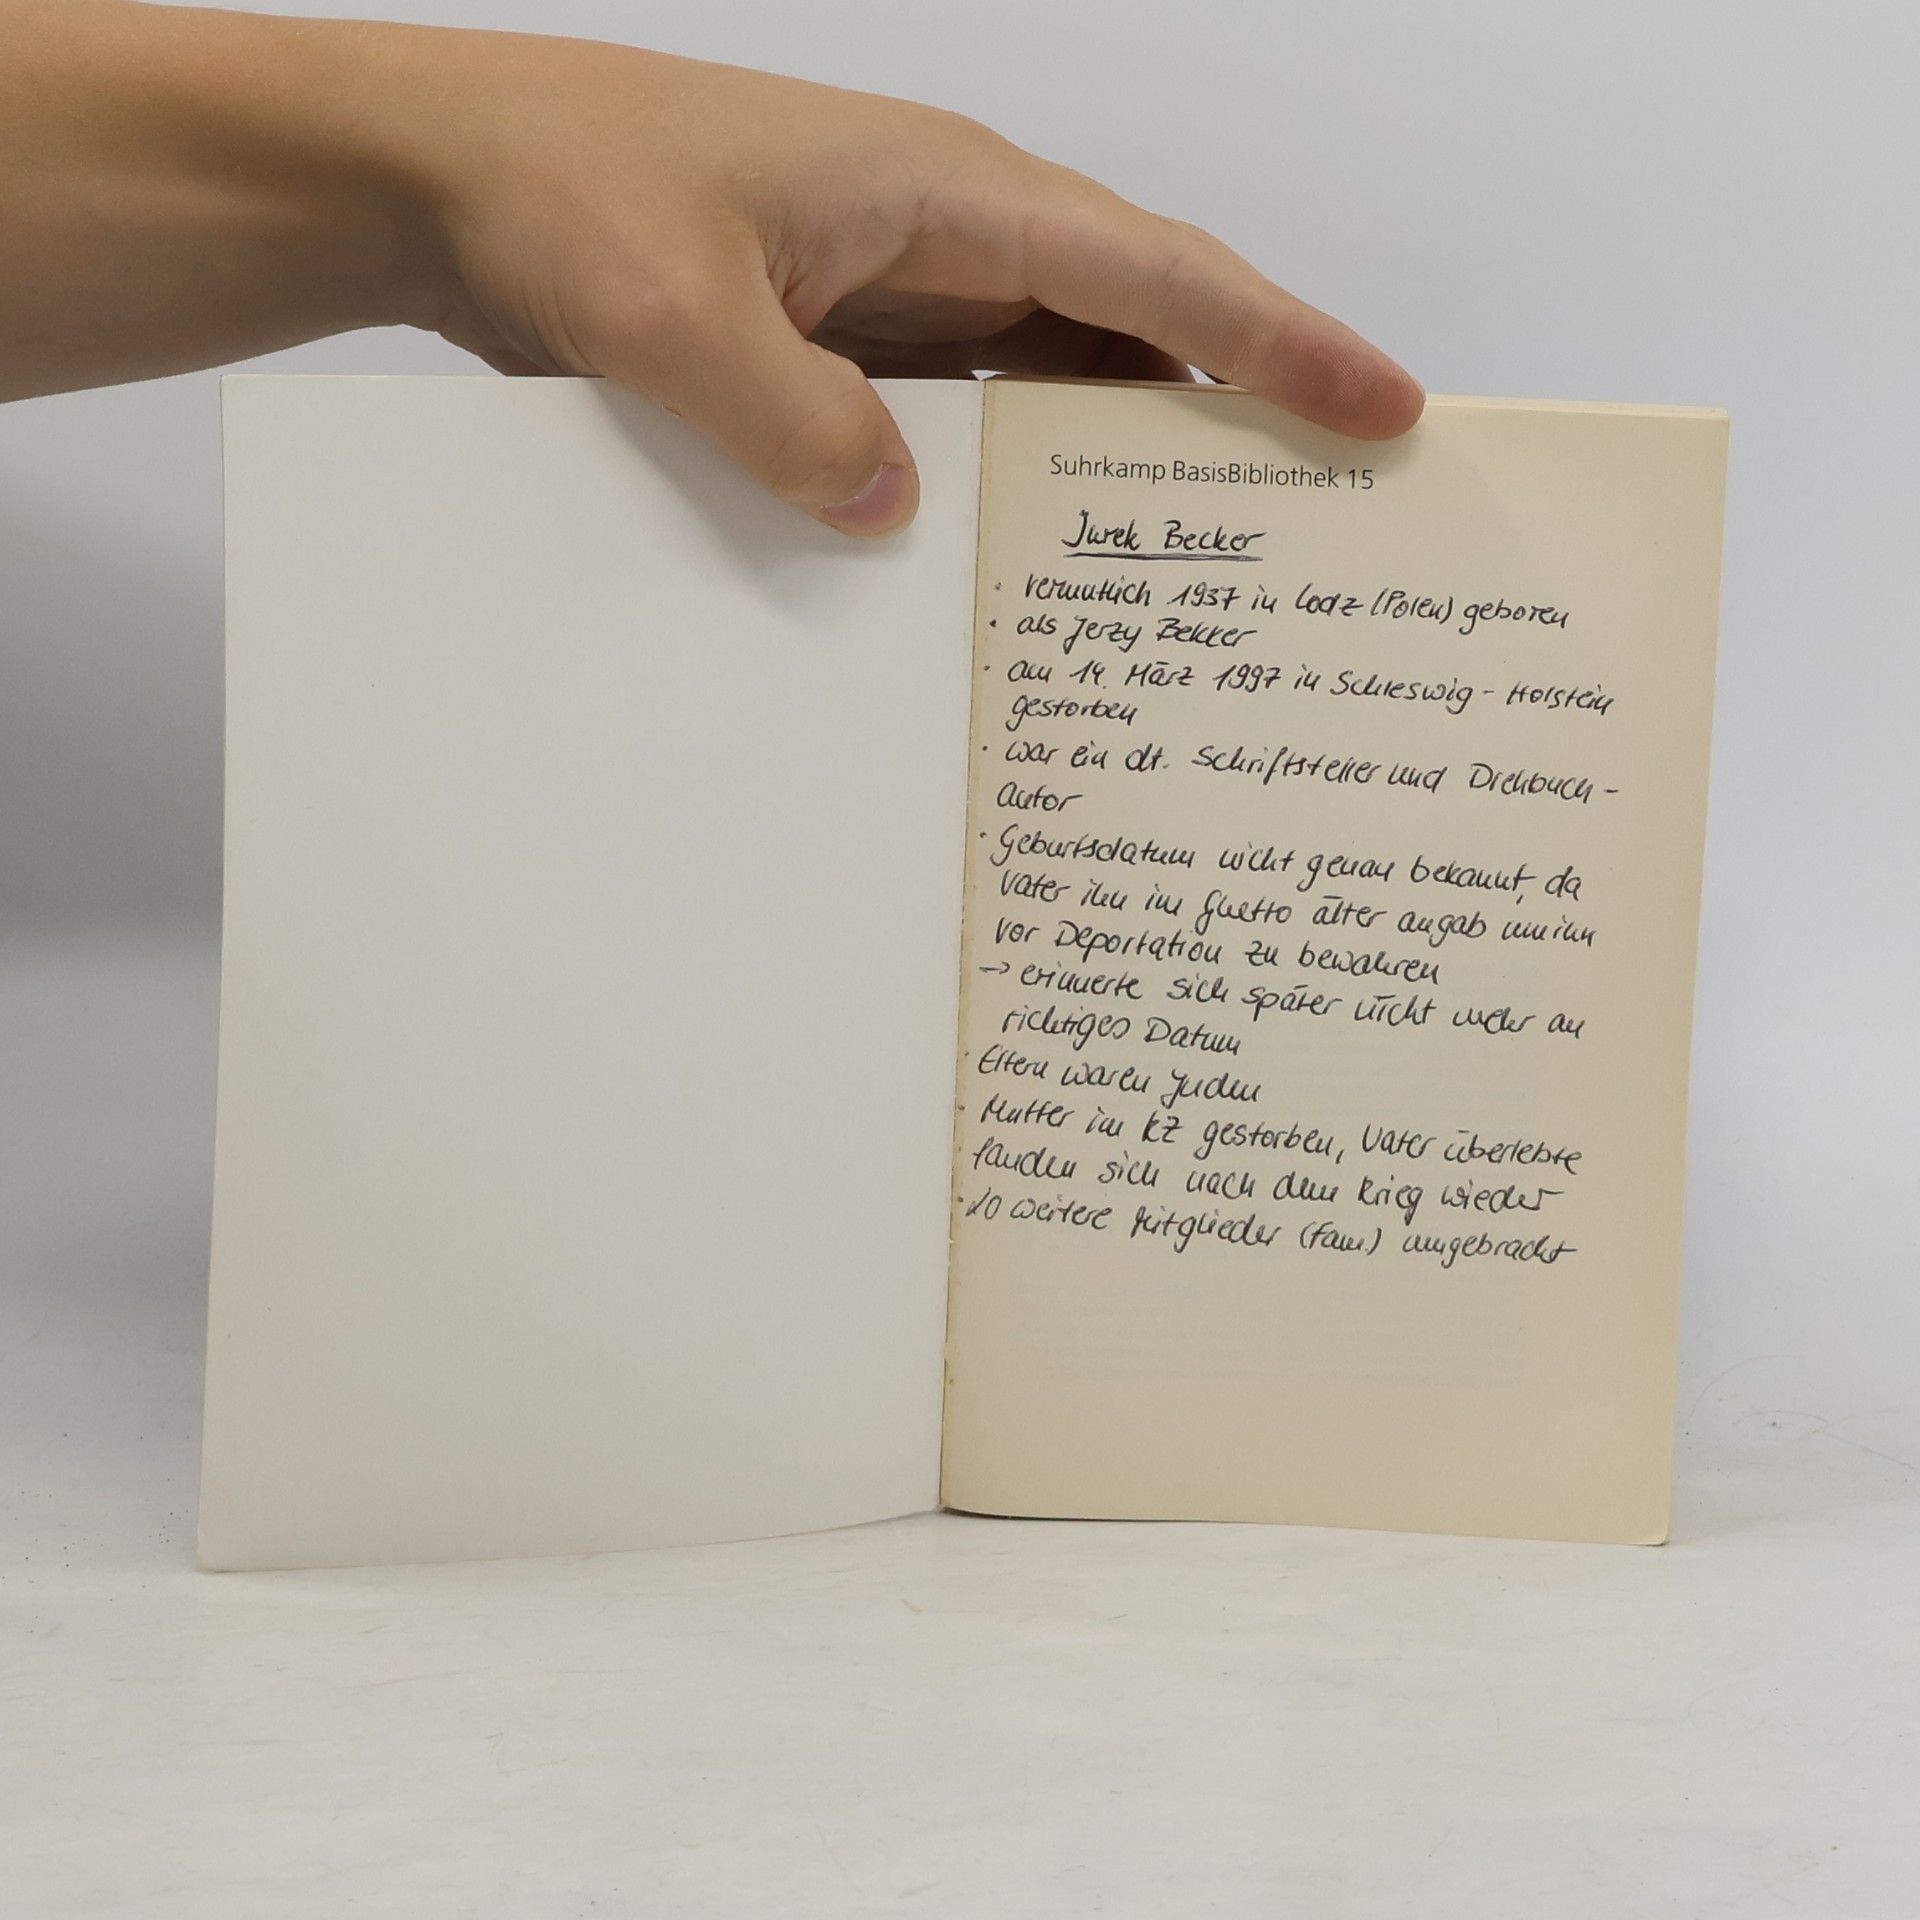 Suhrkamp BasisBibliothek 15
Jurek Becker
· vermutlich 1937 in Lodz (Polen) geboren
· als Jerzy Bekker
· am 14. März 1997 in Schleswig-Holstein
gestorben
· war ein dt. Schriftsteller und Drehbuch-
autor
· Geburtsdatum nicht genau bekannt, da
Vater ihn im Ghetto älter angab um ihn
vor Deportation zu bewahren
→ erinnerte sich später nicht mehr an
richtiges Datum
· Eltern waren Juden
· Mutter im KZ gestorben, Vater überlebte
fanden sich nach dem Krieg wieder
· 20 weitere Mitglieder (Fam.) umgebracht